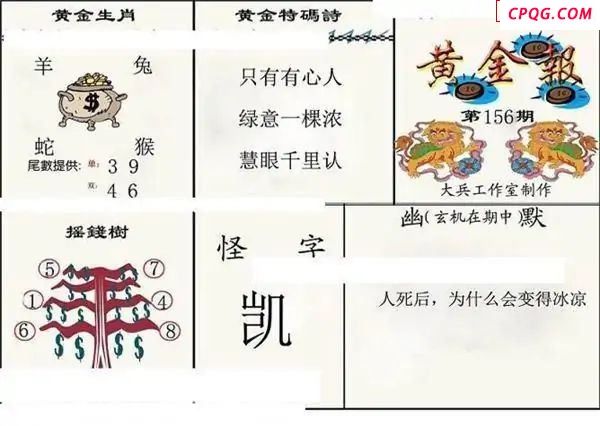 CPQG.COM
黄金生肖
羊 兔
$
蛇 猴
尾數提供: 单: 3 9
双: 4 6
黄金特碼詩
只有有心人
绿意一棵浓
慧眼千里认
黄金報
第156期
大兵工作室制作
摇錢樹
⑤ ⑦
① ④
⑥ ⑧
$ $ $ $
$ $ $ $
$ $ $ $
怪 字
凯
幽(玄机在期中)默
人死后，为什么会变得冰凉